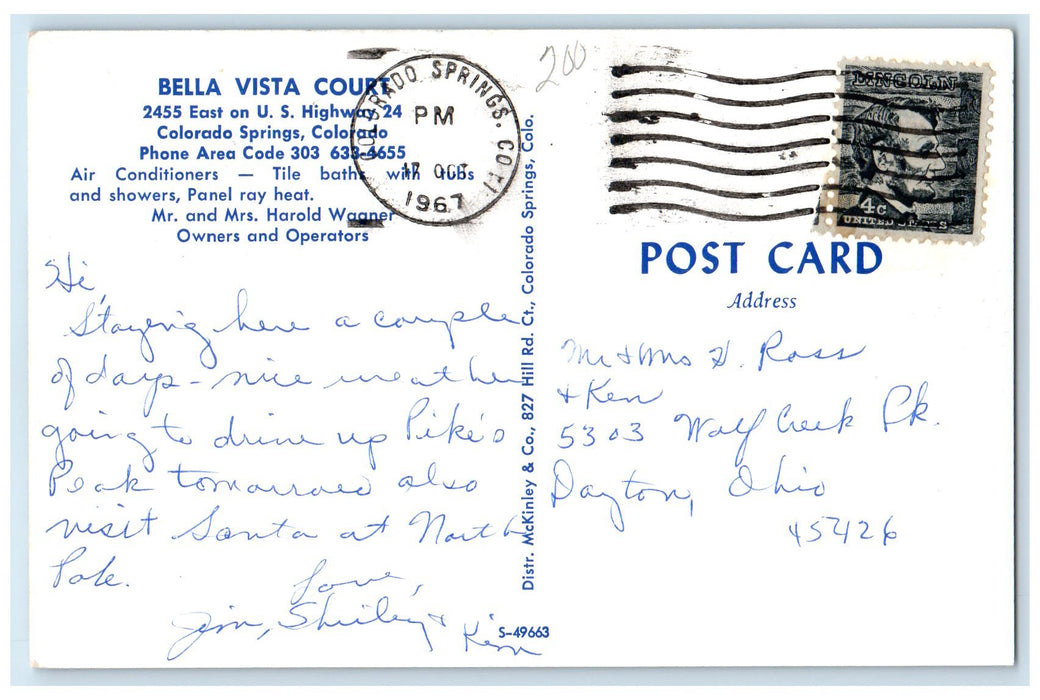 BELLA VISTA COURT
2455 East on U. S. Highway 24
Colorado Springs, Colorado
Phone Area Code 303 633-4655
Air Conditioners — Tile baths with tubs
and showers, Panel ray heat.
Mr. and Mrs. Harold Wagner
Owners and Operators
COLORADO SPRINGS, COLO.
PM
17 OCT
1967
200
LINCOLN
4c
UNITED STATES
Hi,
Staying here a couple
of days - nice weather
going to drive up Pike's
Peak tomorrow also
visit Santa at North
Pole.
Love,
Jim, Shirley &
Kim
Distr. McKinley & Co., 827 Hill Rd. Ct., Colorado Springs, Colo.
S-49663
POST CARD
Address
Mr & Mrs H. Ross
& Ken
5303 Wolf Creek Pk.
Dayton, Ohio
45426